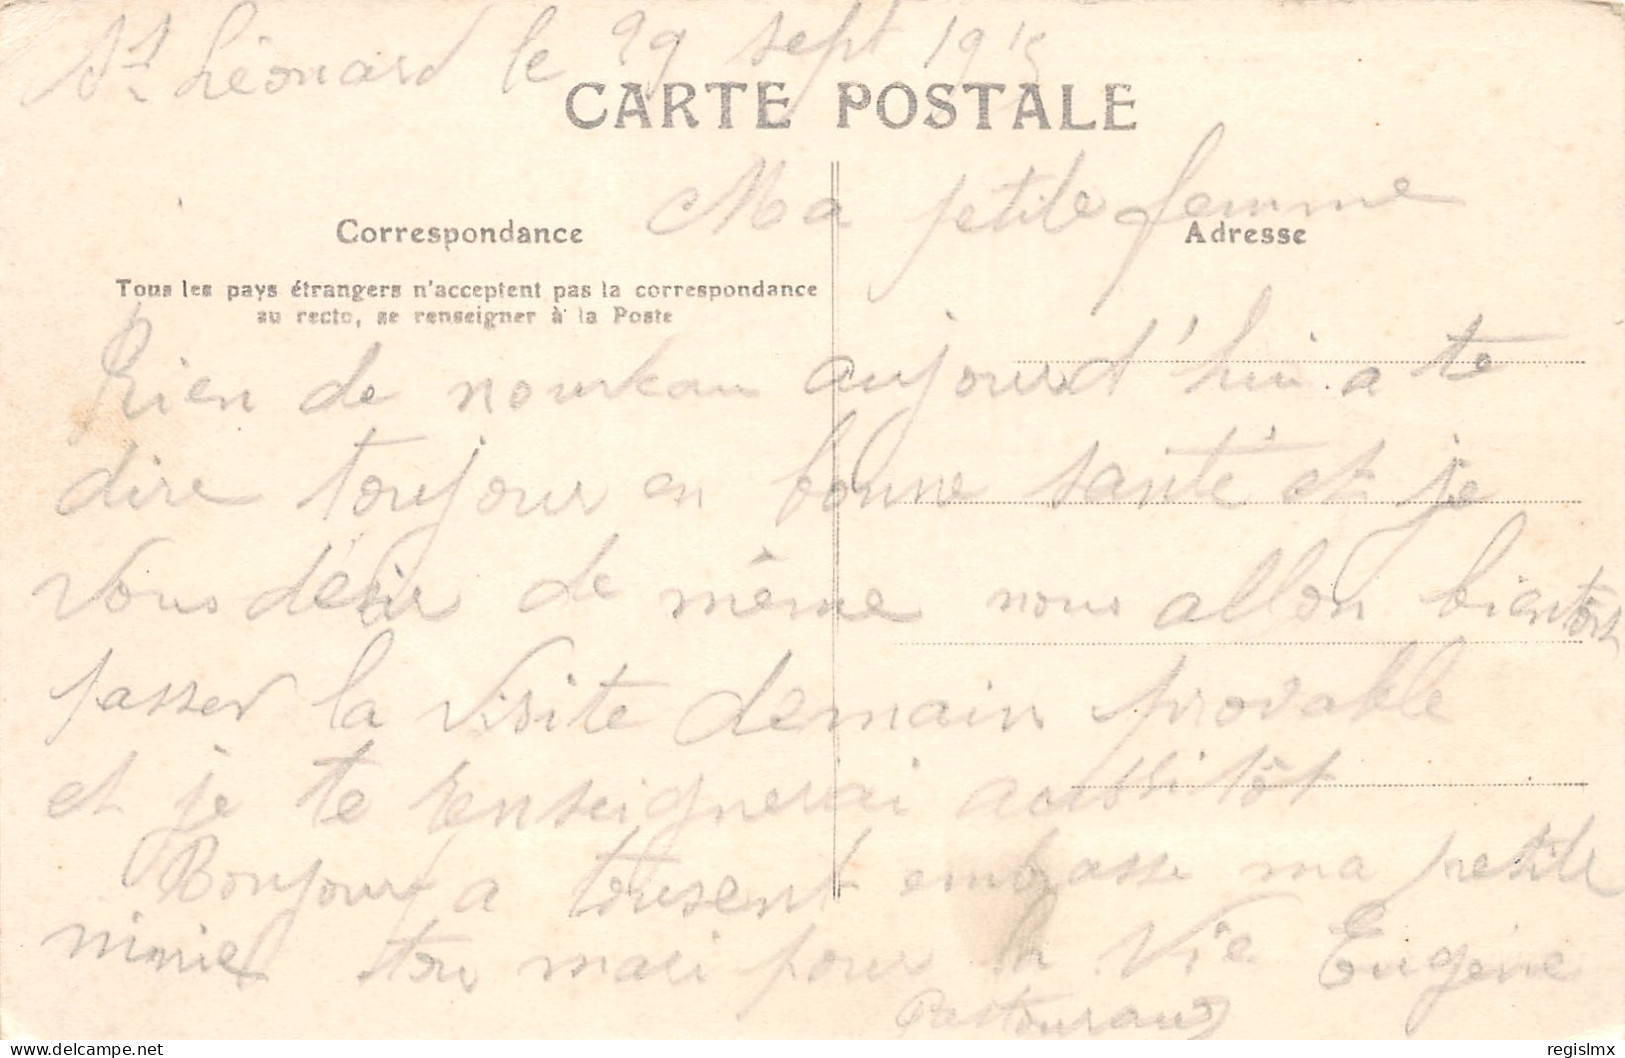 St Léonard le 29 sept 1915
CARTE POSTALE
Ma petite femme
Correspondance
Adresse
Tous les pays étrangers n'acceptent pas la correspondance
au recto, se renseigner à la Poste
Rien de nouveau aujourd'hui a te
dire toujour en bonne santé et je
vous désir de même nous allon bientôt
passer la visite demain provable
et je te renseignerai aussitôt
Bonjour a tousent embrasse ma petite
mimie ton mari pour la vie Eugène
Pastouraud
delcampe.net
regislmx